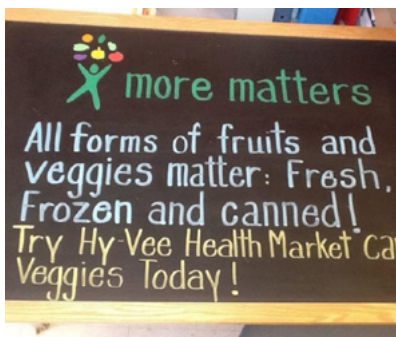 more matters
All forms of fruits and
veggies matter: Fresh,
Frozen and canned!
Try Hy-Vee Health Market Ca
Veggies Today!